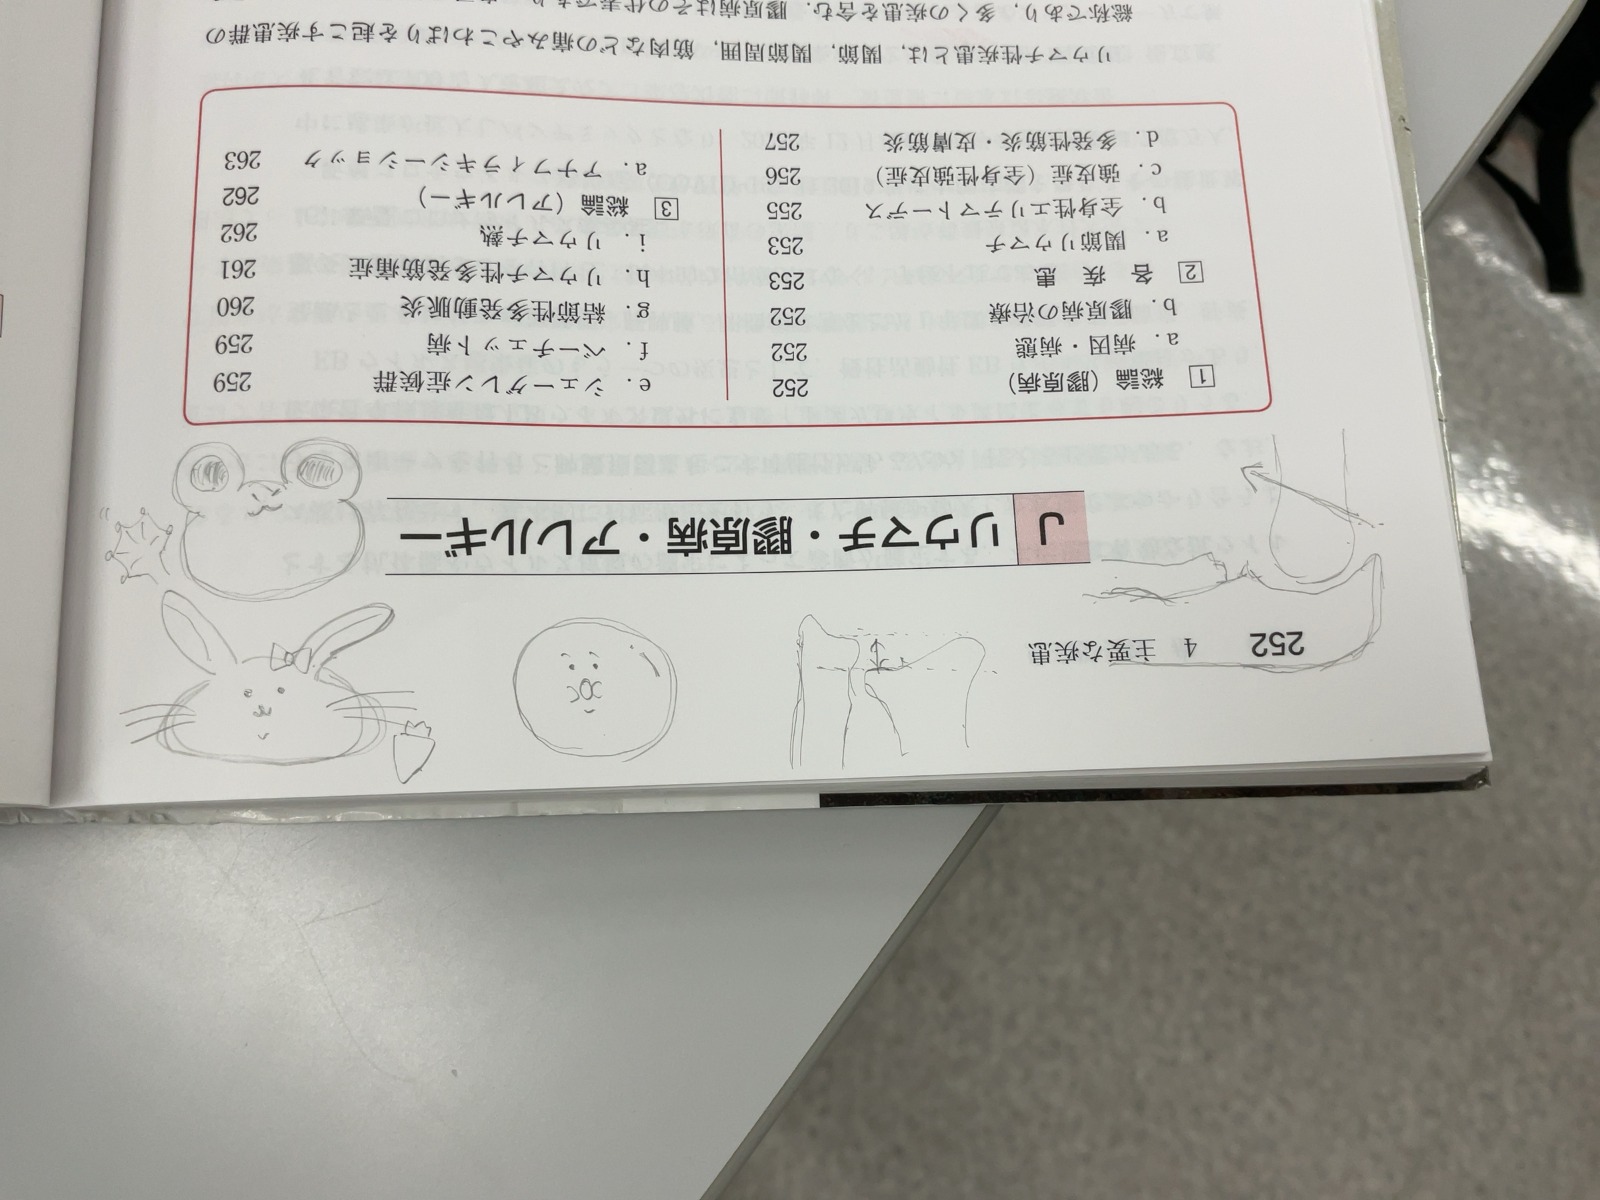 252 4 主要な疾患
J リウマチ・膠原病・アレルギー
1 総論（膠原病） 252
a．病因・病態 252
b．膠原病の治療 252
2 各 疾 患 253
a．関節リウマチ 253
b．全身性エリテマトーデス 255
c．強皮症（全身性強皮症） 256
d．多発性筋炎・皮膚筋炎 257
e．シェーグレン症候群 259
f．ベーチェット病 259
g．結節性多発動脈炎 260
h．リウマチ性多発筋痛症 261
i．リウマチ熱 262
3 総論（アレルギー） 262
a．アナフィラキシーショック 263
リウマチ性疾患とは，関節，関節周囲，筋肉などの痛みやこわばりを起こす疾患群の
総称であり，多くの疾患を含む．膠原病はその代表であり，